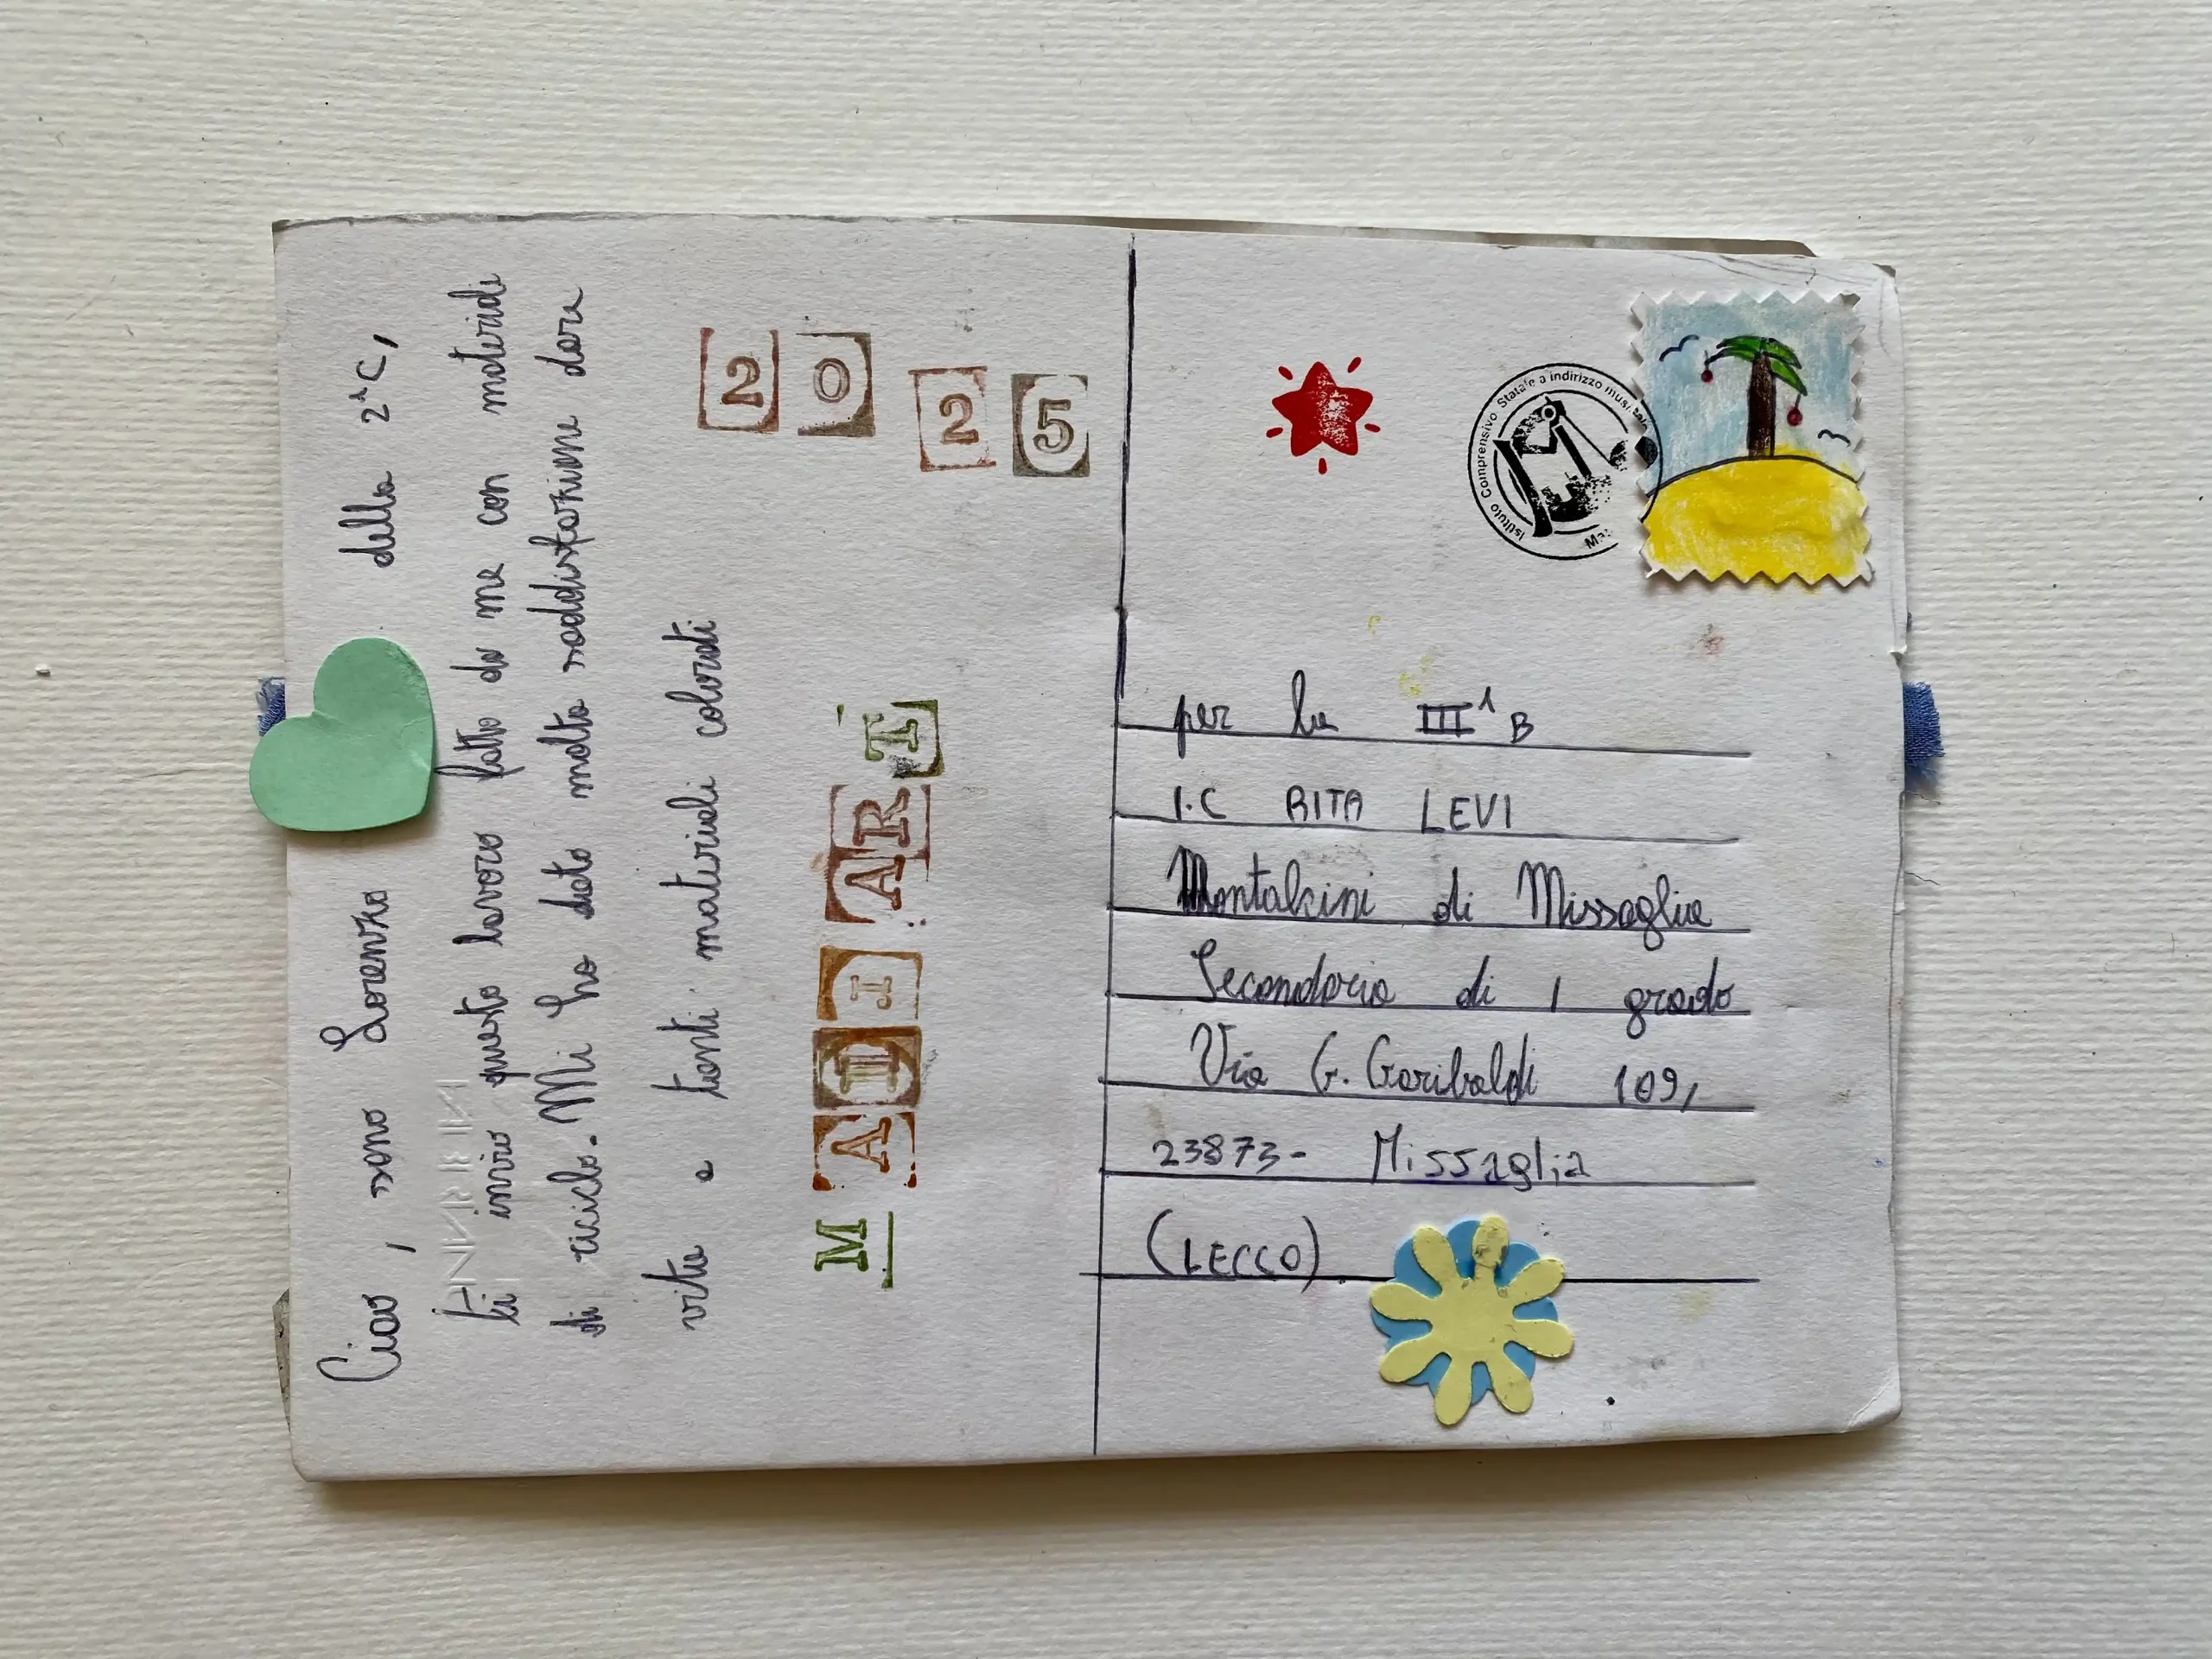 Ciao, sono Lorenzo della 2^C,
ti invio questo lavoro fatto da me con materiali
di riciclo. Mi ha dato molta soddisfazione dare
vita a tanti materiali colorati
20
25
MAIL ART
Istituto Comprensivo Statale a indirizzo
per la III^B
I.C RITA LEVI
Montalcini di Missaglia
Secondaria di 1 grado
Via G. Garibaldi 109,
23873- Missaglia
(LECCO)